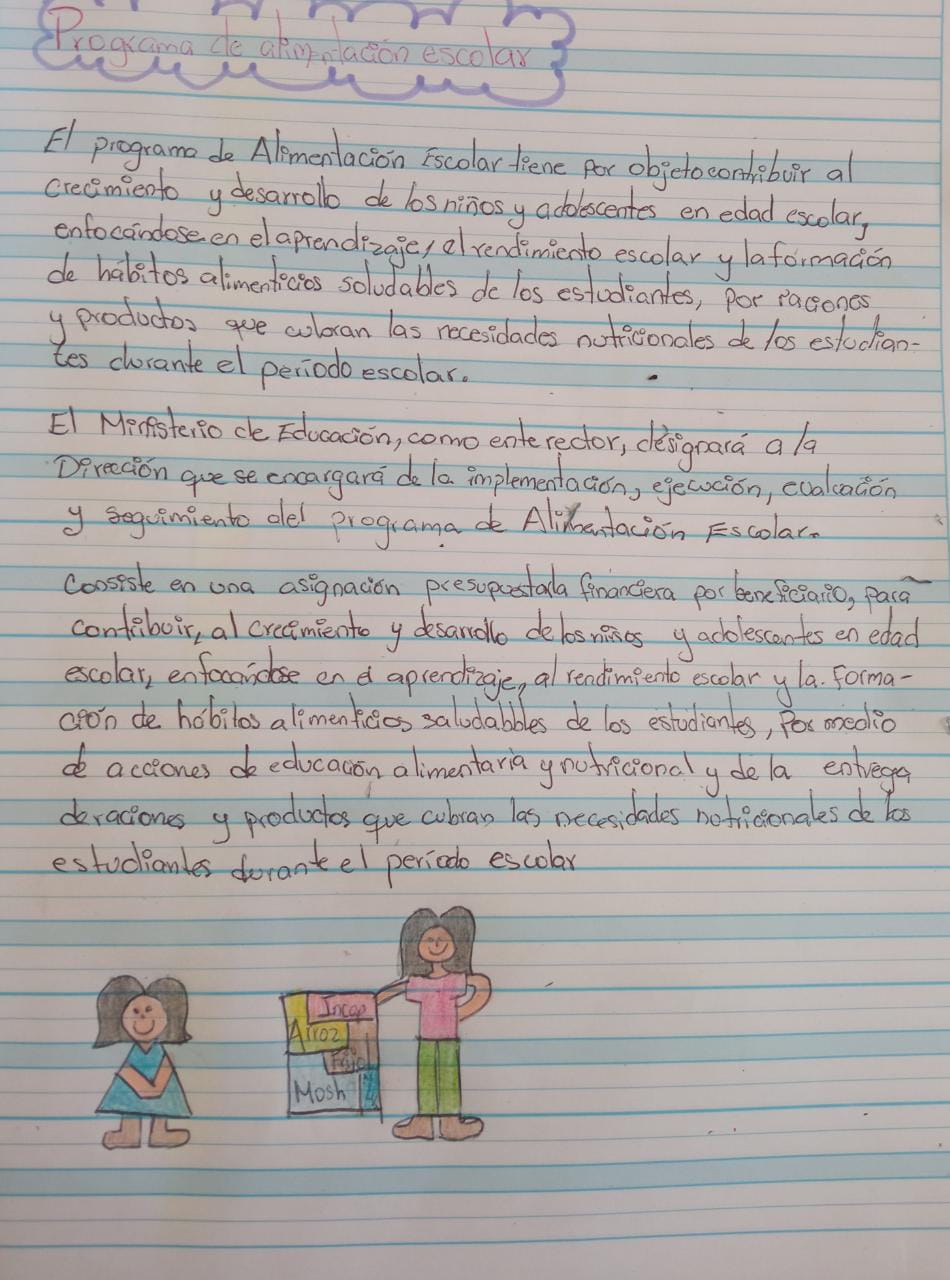 Programa de alimentación escolar
El programa de Alimentación Escolar tiene por objeto contribuir al
crecimiento y desarrollo de los niños y adolescentes en edad escolar,
enfocándose en el aprendizaje, al rendimiento escolar y la formación
de hábitos alimenticios saludables de los estudiantes, por raciones
y productos que cubran las necesidades nutricionales de los estudian-
tes durante el período escolar.
El Ministerio de Educación, como ente rector, designará a la
Dirección que se encargará de la implementación, ejecución, evaluación
y seguimiento del programa de Alimentación Escolar.
Consiste en una asignación presupuestaria financiera por beneficiario, para
contribuir, al crecimiento y desarrollo de los niños y adolescentes en edad
escolar, enfocándose en el aprendizaje, al rendimiento escolar y la forma-
ción de hábitos alimenticios saludabbles de los estudiantes, Por medio
de acciones de educación alimentaria y nutricional y de la entrega
de raciones y productos que cubran las necesidades nutricionales de los
estudiantes durante el período escolar
Incap
Arroz
Frijol
Mosh